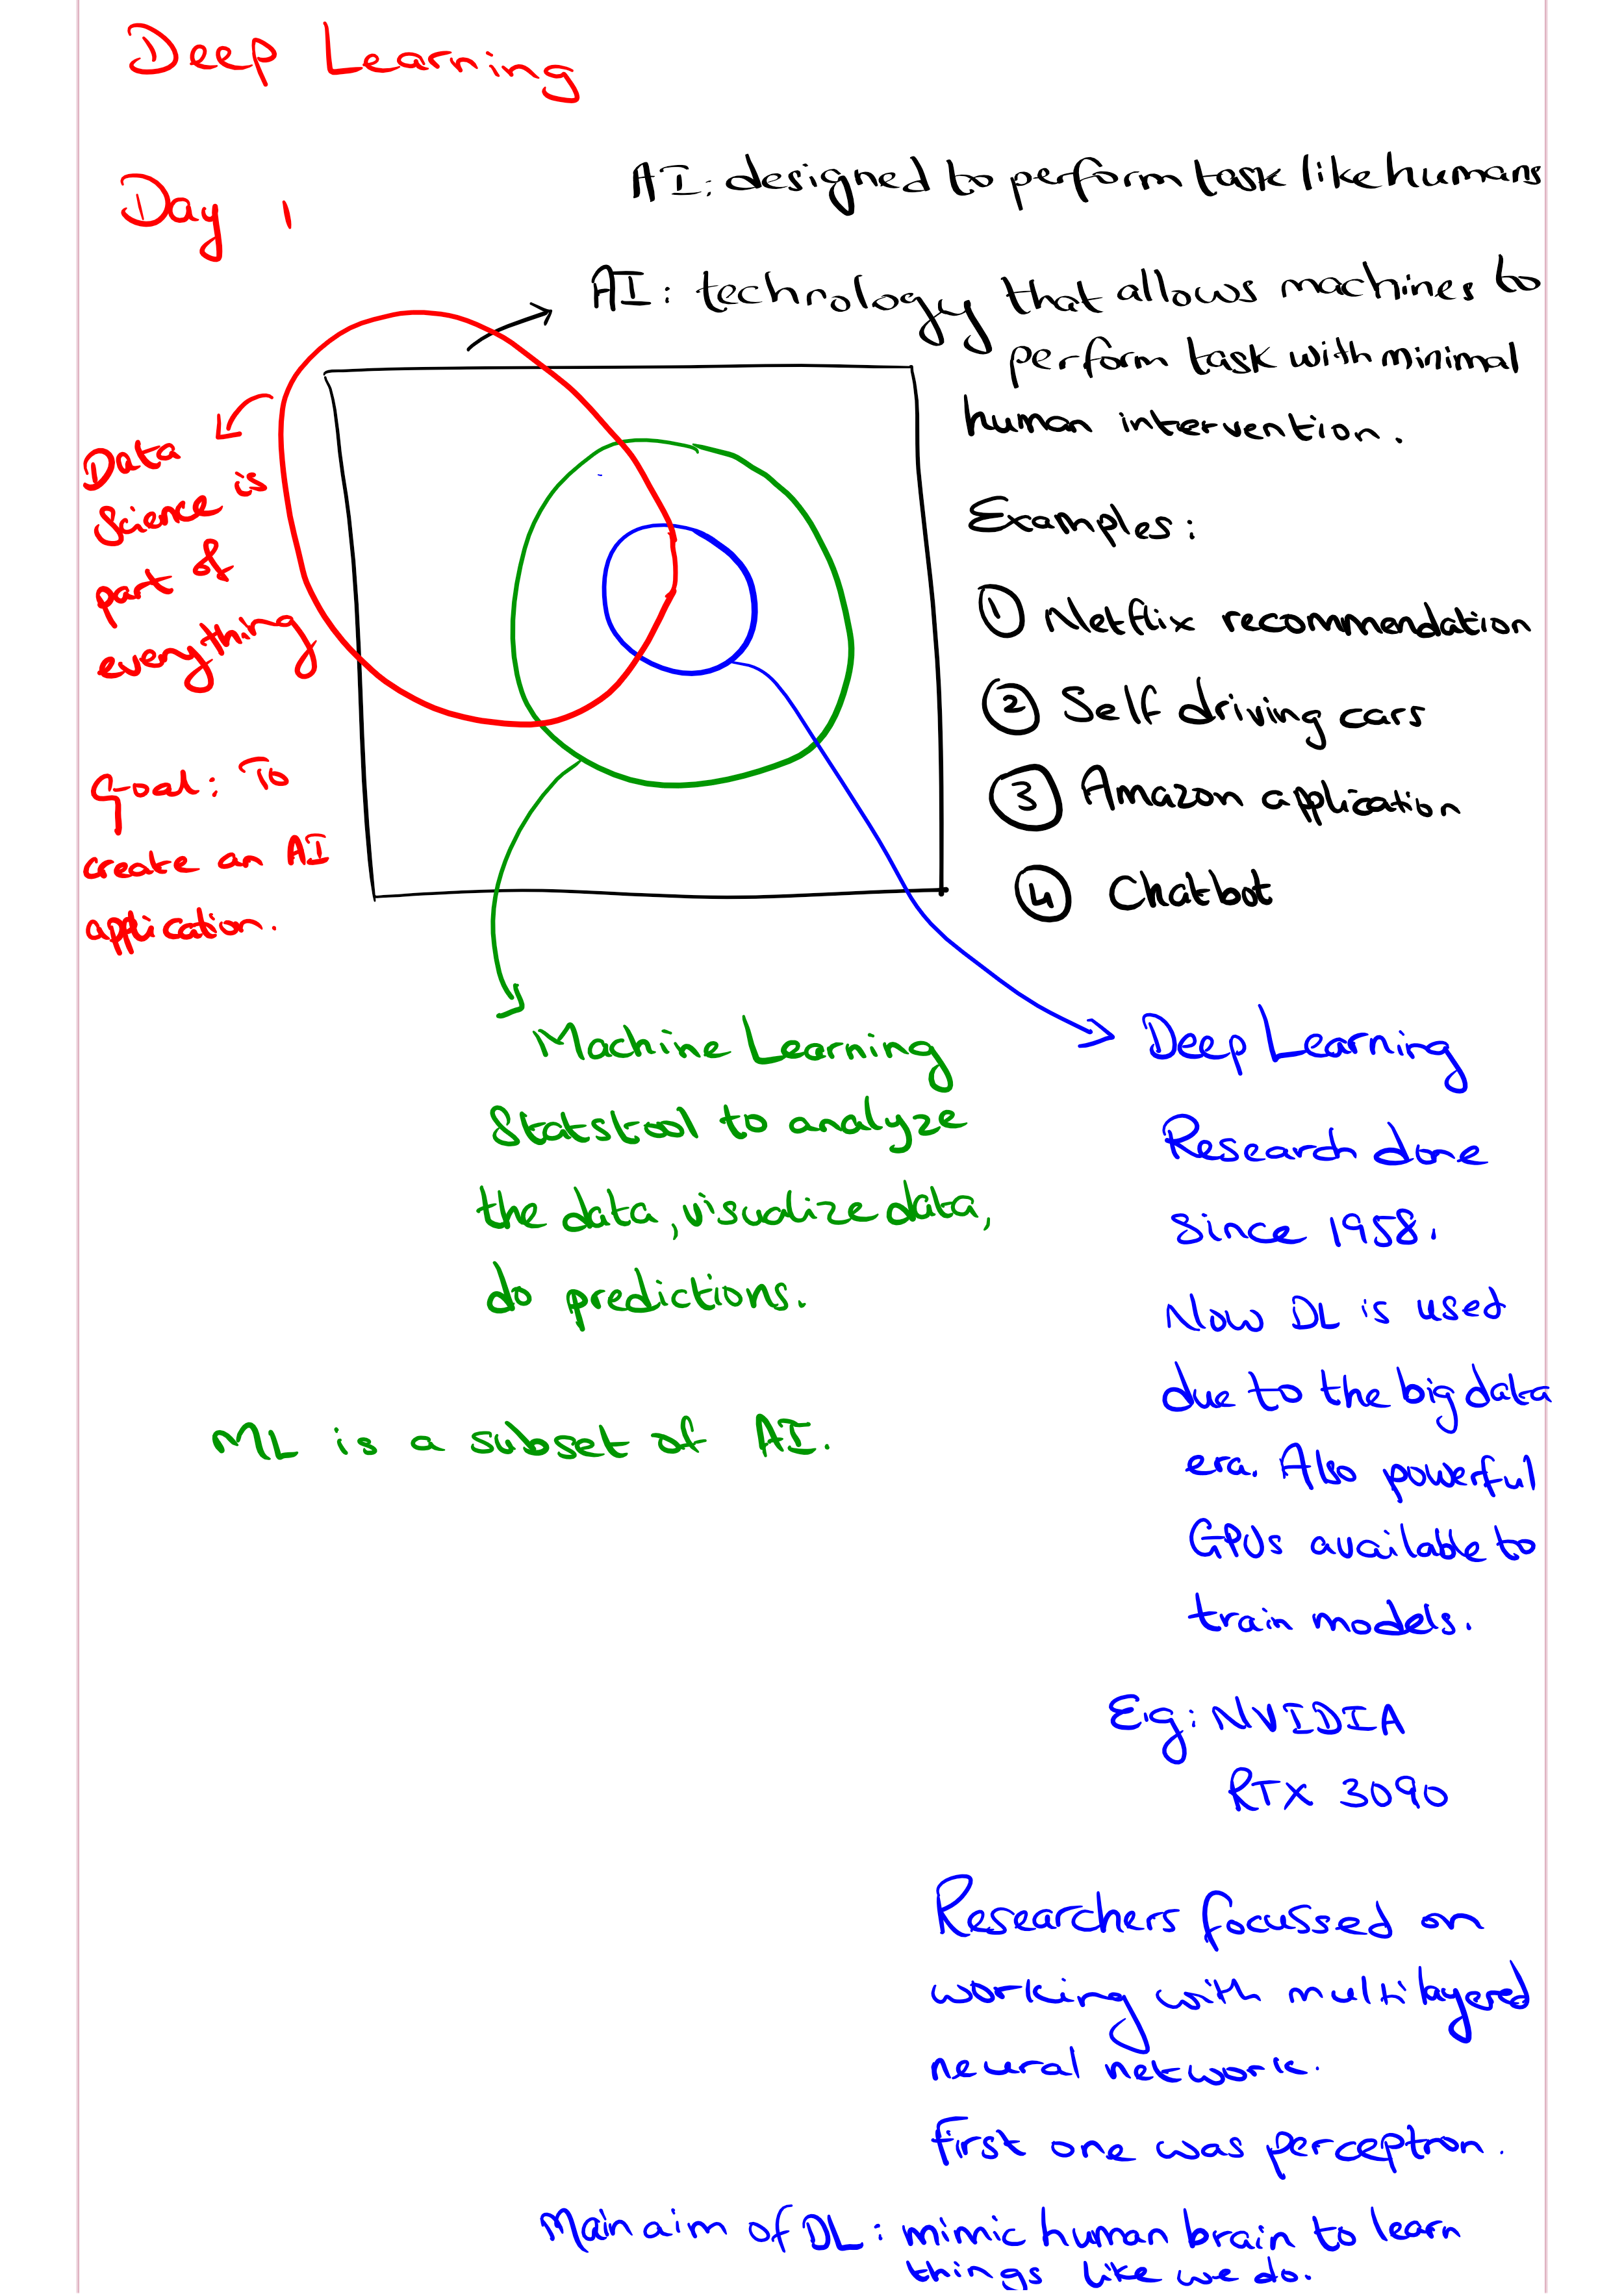 Deep Learning
Day 1
AI: designed to perform task like humans
AI: technology that allows machines to
perform task with minimal
human intervention.
Data
Science is
part of
everything
Goal: To
create an AI
application.
Examples:
1 Netflix recommendation
2 Self driving cars
3 Amazon application
4 Chatbot
Machine Learning
Statstool to analyze
the data, visualize data,
do predictions.
ML is a subset of AI.
Deep Learning
Research done
Since 1958.
Now DL is used
due to the big data
era. Also powerful
GPUs available to
train models.
E.g: NVIDIA
RTX 3090
Researchers focussed on
working with multilayered
neural network.
First one was perceptron.
Main aim of DL: mimic human brain to learn
things like we do.